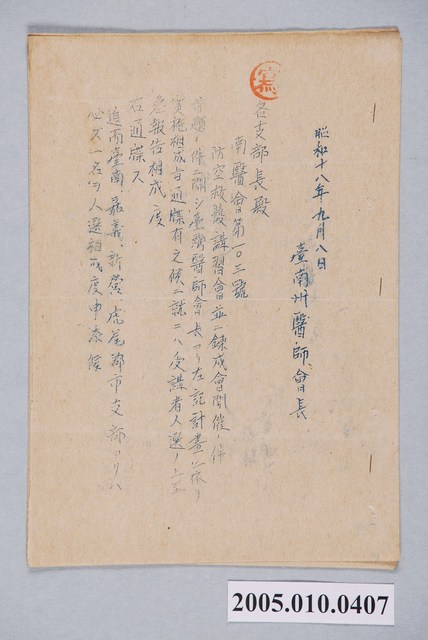 昭和十八年九月八日
臺南州醫師會長
各支部長殿
南醫會第一〇三號
防空救護講習會並ニ錬成會開催ノ件
首題ノ件ニ關シ臺灣醫師會長ヨリ左記計畫ニ依リ
實施相成旨通牒有之候ニ就テハ受講者人選ノ上至
急報告相成度
右通牒ス
追而臺南、嘉義、新營、虎尾郡市支部ヨリハ
必ズ一名ヲ人選相成度申添候
2005.010.0407